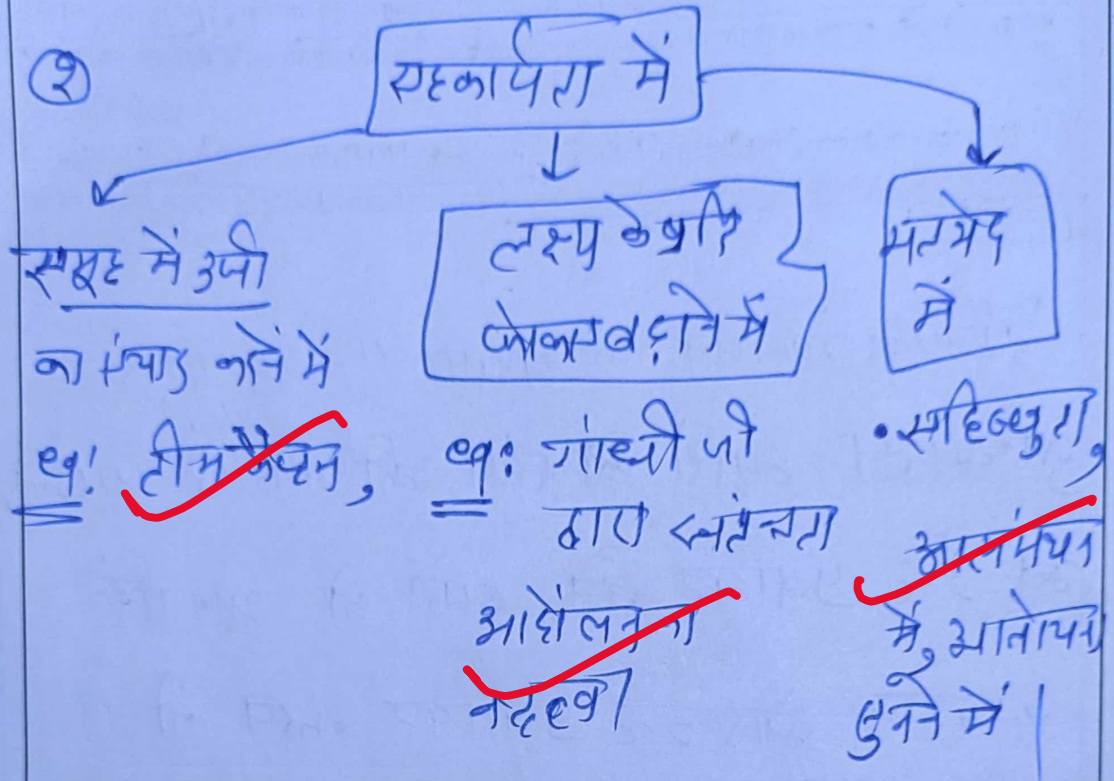 २
सहकार्यता में
समूह में ऊर्जा
का संचार करने में
eg: टीम कैप्टन,
लक्ष्य के प्रति
फोकस बढ़ाने में
eg: गांधी जी
द्वारा स्वतंत्रता
आंदोलन का
नेतृत्व।
मतभेद
में
• सहिष्णुता,
आत्ममंथन
में, आलोचना
सुनने में।